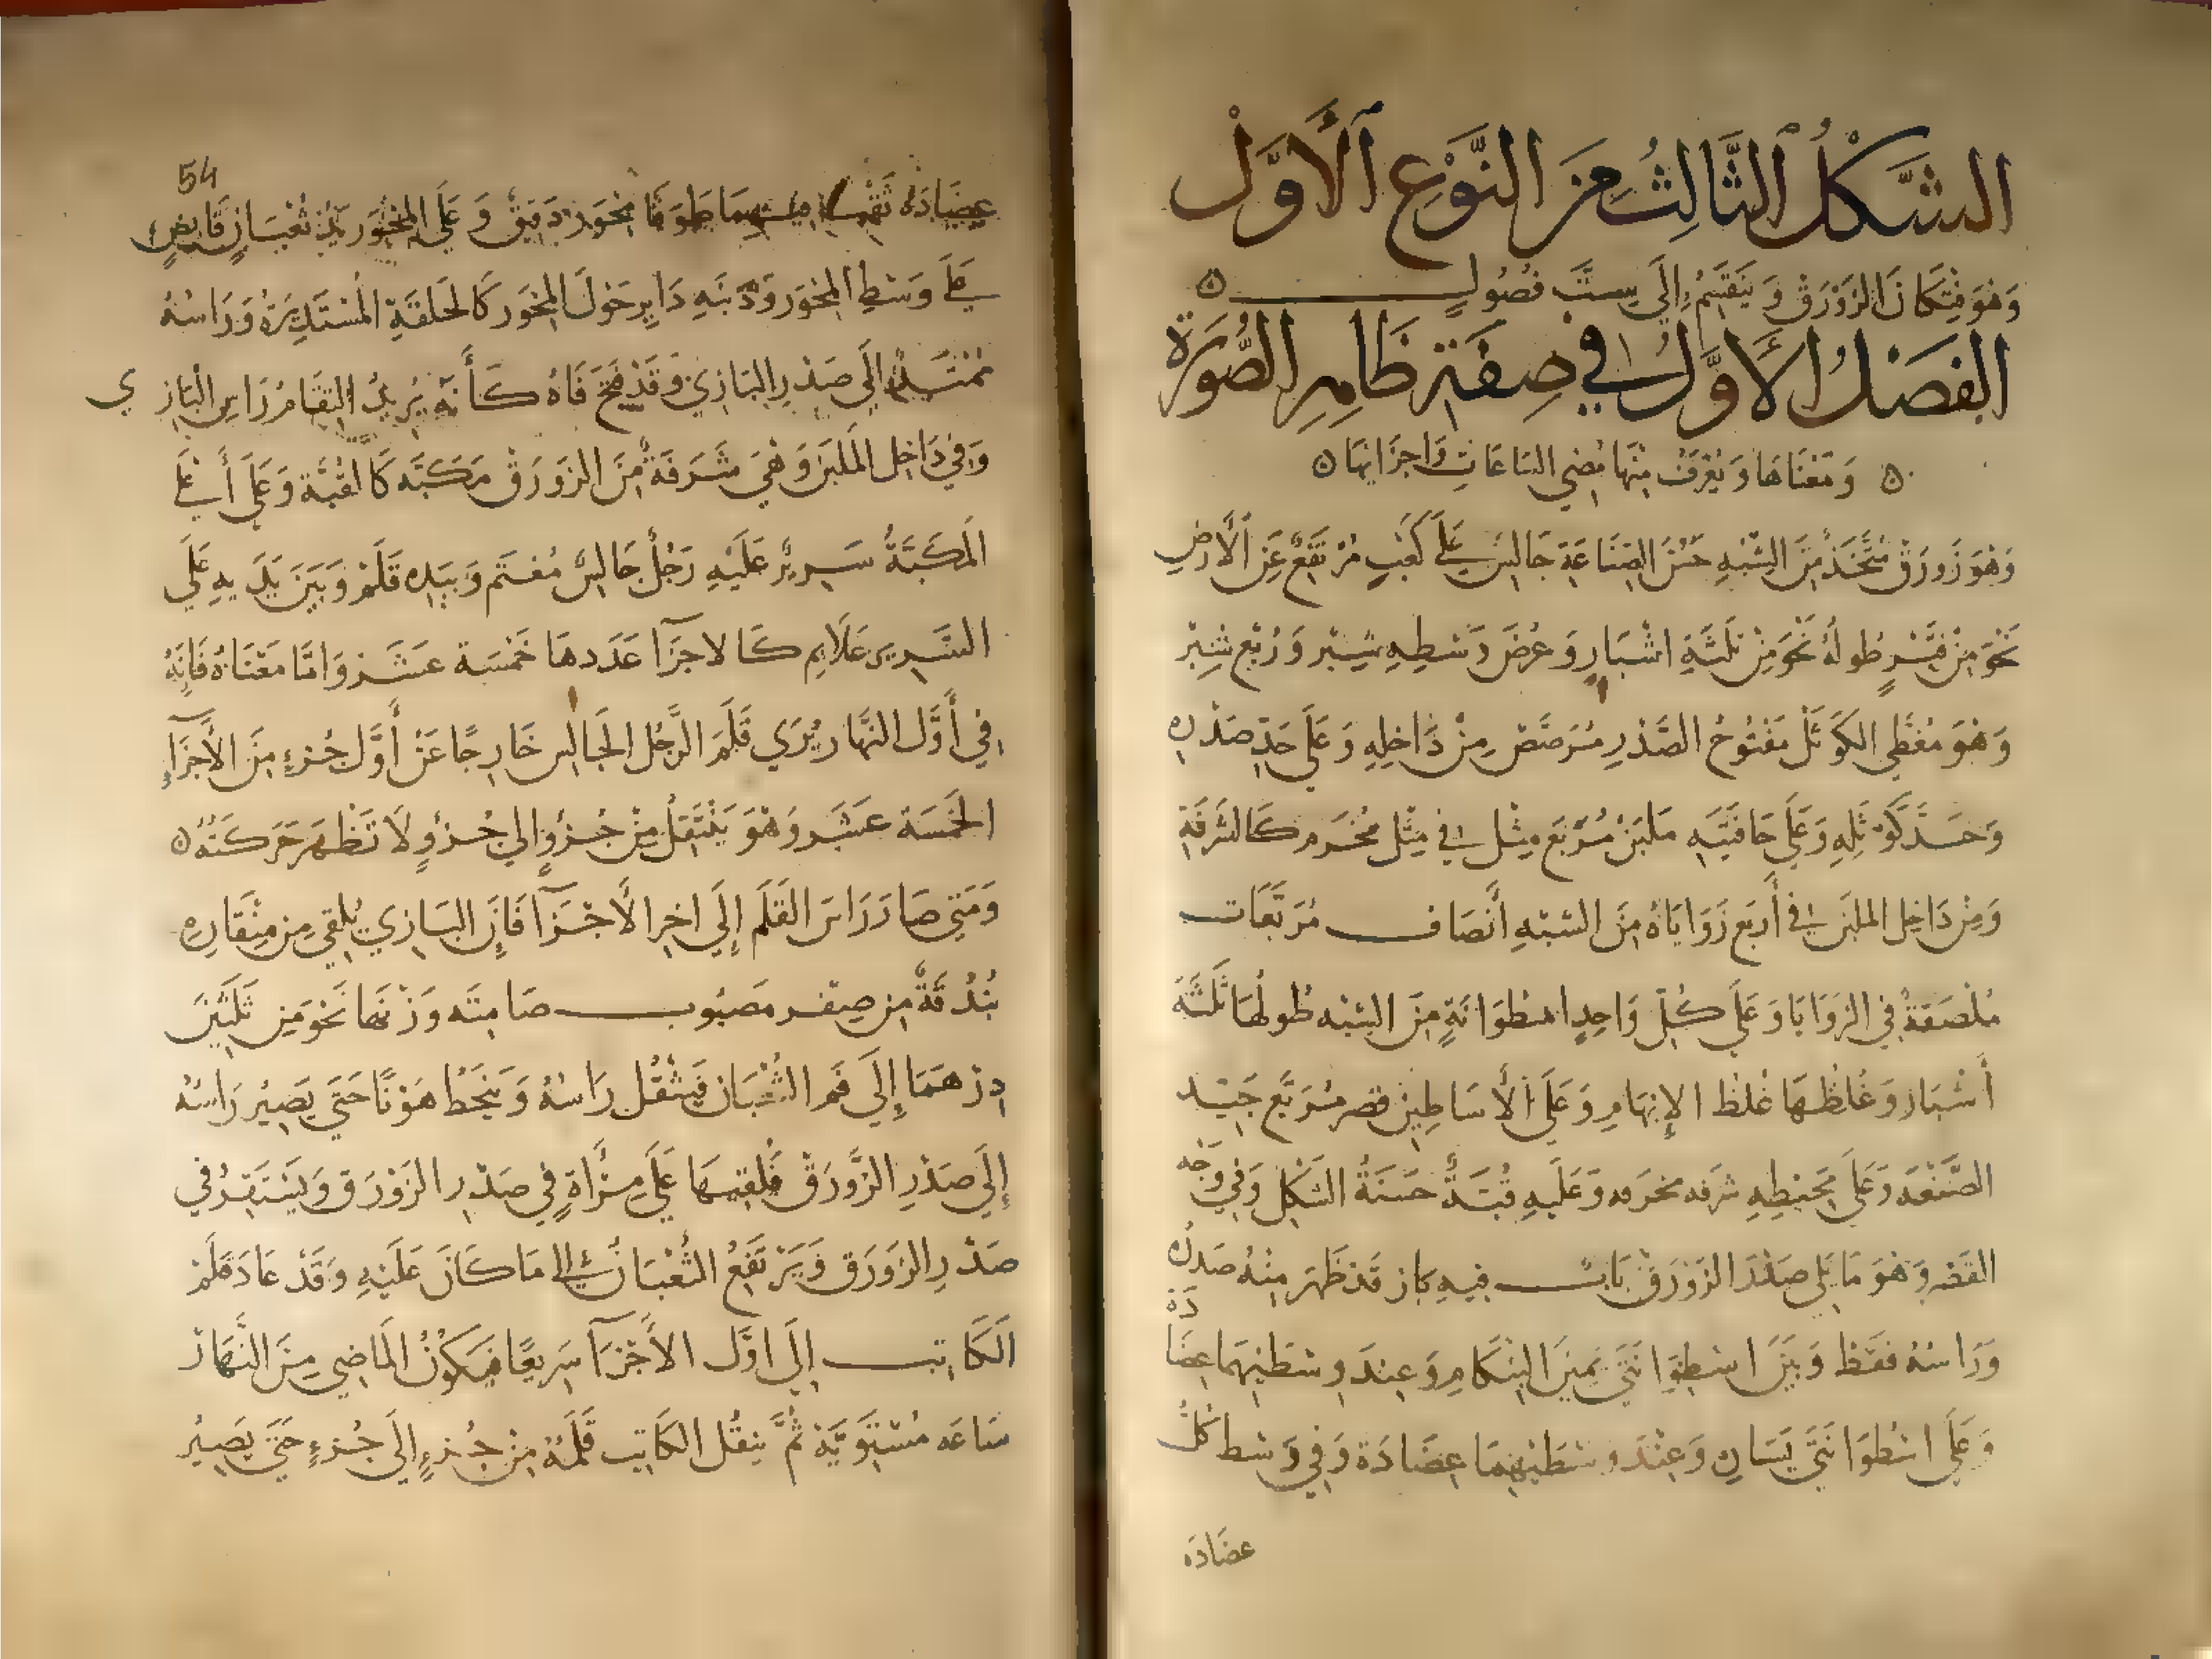 الشَّكْلُ الثَّالِثُ مِنَ النَّوْعِ الأَوَّل
وَهُوَ فِنْكَانُ الزَّوْرَقْ وَ يَنْقَسِمُ إِلَى سِتَّ فصُولٍ ۞
الفَصْلُ الأَوَّلُ فِي صِفَةِ ظَاهِرِ الصُّورَةِ
۞ وَمَعْنَاهَا وَ يُعْرَفُ مِنْهَا مُضِي السَّاعَاتِ وَاجزَائِهَا ۞
وَهُوَ زَورَقْ مُتَّخَذٌ مِنَ الشِّبْهِ حَسَنُ الصِّنَاعَةِ جَالِسٌ عَلَى كَعْبٍ مُرْتَفِعٍ عَنِ الأَرْضِ
نَحْوَ مِنْ فِتْرٍ طُولهُ نَحْوَ مِنْ ثَلثَةِ اشْبَارٍ وَ عَرْضُ وَسْطِهِ شِبْر وَ رُبْع شِبْر
وَ هُوَ مُغَطَّى الكَوثَلْ مَفْتُوحُ الصَّدْرِ مُرَصَّصْ مِنْ دَاخِلِهِ وَ عَلَى حَدِّ صَدْرِهِ
وَحَدَّ كَوْثَلِهِ وَعَلَى حَافتَيْهِ مَلبَنْ مُرَبَّع مِثْل فِي مِثْل مُخَرَم كَالشرفَةِ
وَمِنْ دَاخِل الملبَن فِي أَربَع زَوَايَاهُ مِنَ الشبْهِ أَنْصَاف مُرَبَّعَات
مُلْصَقَةٌ فِي الزَوَايَا وَ عَلَى كُلِّ وَاحِدٍ اسطوَانَةٍ مِنَ الشِبْه طُولُهَا ثَلثَةَ
أَشْبَار وَ غلظُهَا غلظ الإِبْهَامِ وَ عَلَى الأَسَاطِين قصر مُرَبَّع جَيِّد
الصَّنْعَه وَ عَلَى مُحِيطِهِ شرَفه مخرَمه وَ عَلَيهِ قُبَّةٌ حَسَنَةُ الشَكْل وَ فِي وَجْه
القَصْرِ وَهُوَ مَا يَلِي صَدْرَ الزَوْرَقْ بَابٌ فِيهِ بَاز قَد ظَهَرَ مِنْهُ صَدْرُهُ
وَرَاسُهُ فَقَط وَ بَيْنَ اسْطِوَانَتَيْ يَمِينَ البِنْكَامِ وَ عِندَ وسْطَيْهِمَا عِضَادَة
وَ عَلَى اسْطوَانَتَيْ يَسَارِهِ وَعِنْدَ وسْطَيْهِمَا عِضَادَة وَ فِي وَسْط كُلِّ
عضَادَه
54
عِضَادَة وَ عَلَى المِحْوَر ثُعْبَانٍ قَابِضٍ
عَلَى وَسْطِ المِحْوَر وَ ذَنَبِهِ دَايِر حَوْلَ المِحْوَر كَالحَلقَةِ المُسْتَدِيرَةُ وَرَاسُهُ
مُمْتَدٌ إِلَى صَدْرِ البَازِي وَ قَدْ فَتَحَ فَاهُ كَأَنَّهُ يُرِيدُ التِقَامُ رَاسِ البَازِي
وَ فِي دَاخِل المَلبَن وَ هِيَ شَرَفَةٌ مِنَ الزَوْرَقْ مَكَبَّه كَالقُبَّة وَ عَلَى أَعْلَى
المَكَبَّةُ سَرِيرٌ عَلَيْهِ رَجُلٌ جَالِسٌ مُعْتَم وَ بيَدِه قَلَمْ وَ بَيْنَ يَدَيهِ عَلَى
السَّرِيرِ عَلَايِم كَالاجزَآ عَدَدهَا خَمْسَة عَشَر وَ امَّا مَعْنَاهُ فَإِنَّهُ
فِي أَوَّلِ النَّهَار يُرَى قَلَمَ الرَّجُلِ الجَالِس خَارِجًا عَنْ أَوَّلِ جُزءٍ مِنَ الأَجْزَآءِ
الخَمسَة عَشَر وَ هُوَ يَنْتَقِلُ مِنْ جُزْءٍ الى جُزْءٍ وَ لَا تَظْهَر حَرَكَتُهُ ۞
وَمَتَى صَارَ رَاسَ القَلَم إِلَى اخِرِ الأَجْزَآ فَإِنَّ البَازِي يُلقِي مِن مِنْقَارِهِ
بُنْدُقَةٌ مِن صِفْرٍ مَصْبُوب صَامِتَه وَزْنهَا نَحْوَ مِن ثَلَثِينَ
دِرْهَمَا إِلَى فَمِ الثُّعْبَانِ فَيَثْقُلُ رَاسُهُ وَ يَنْحَطُ هَوْنًا حَتَّى يَصِيْر رَاسُهُ
إِلَى صَدْرِ الزَّورَقْ فَيُلقِيهَا عَلَى مِرْآةٍ فِي صَدْرِ الزَوْرَقِ وَ يَسْتَقِرُ فِي
صَدْرِ الزَوْرَقِ وَ يَرْتَفِعُ الثُّعْبَانُ إِلى مَا كَانَ عَلَيْهِ وَ قَدْ عَادَ قَلَمْ
الكَاتِب إِلَى أوَّل الأَجْزَآ سَرِيعًا فيَكُونُ المَاضِي مِنَ النَّهَار
سَاعَه مُسْتَوِيَّة ثُمَّ يَنْقُل الكَاتِب قَلَمَهُ مِنْ جُزءٍ إِلَى جُزءٍ حَتَّى يَصِيْرُ